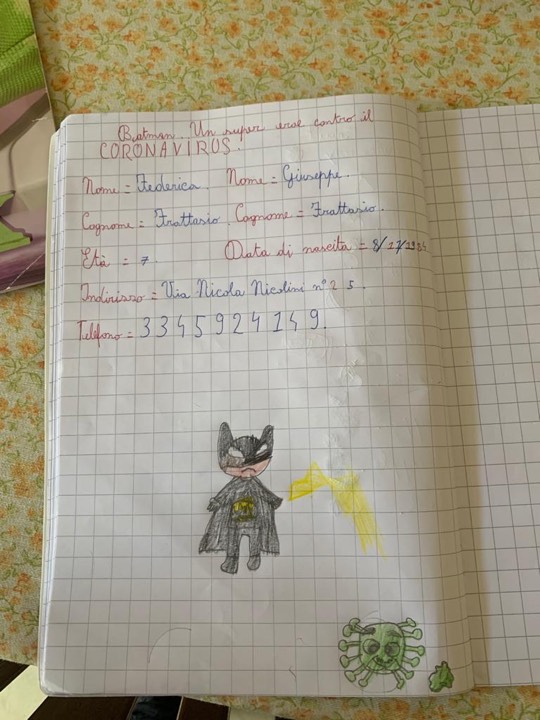 Batman. Un super eroe contro il
CORONAVIRUS.
Nome = Federica. Nome = Giuseppe.
Cognome = Frattasio. Cognome = Frattasio.
Età = 7. Data di nascita =
Indirizzo = Via Nicola Nicolini n° 2 5.
Telefono = 3 3 4 5 9 2 4 1 4 9.